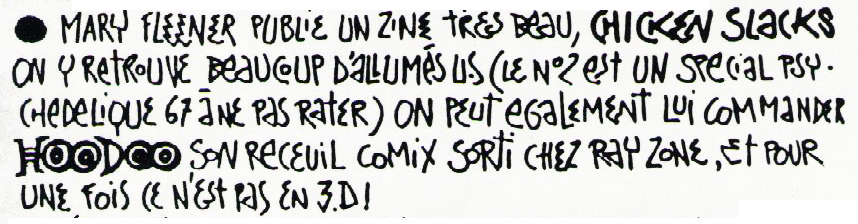 ● MARY FLEENER PUBLIE UN ZINE TRES BEAU, CHICKEN SLACKS
ON Y RETROUVE BEAUCOUP D'ALLUMÉS US (LE N°2 EST UN SPECIAL PSY-
CHEDELIQUE 67 à NE PAS RATER) ON PEUT EGALEMENT LUI COMMANDER
HOODOO SON RECEUIL COMIX SORTI CHEZ RAY ZONE, ET POUR
UNE FOIS CE N'EST PAS EN 3.D!